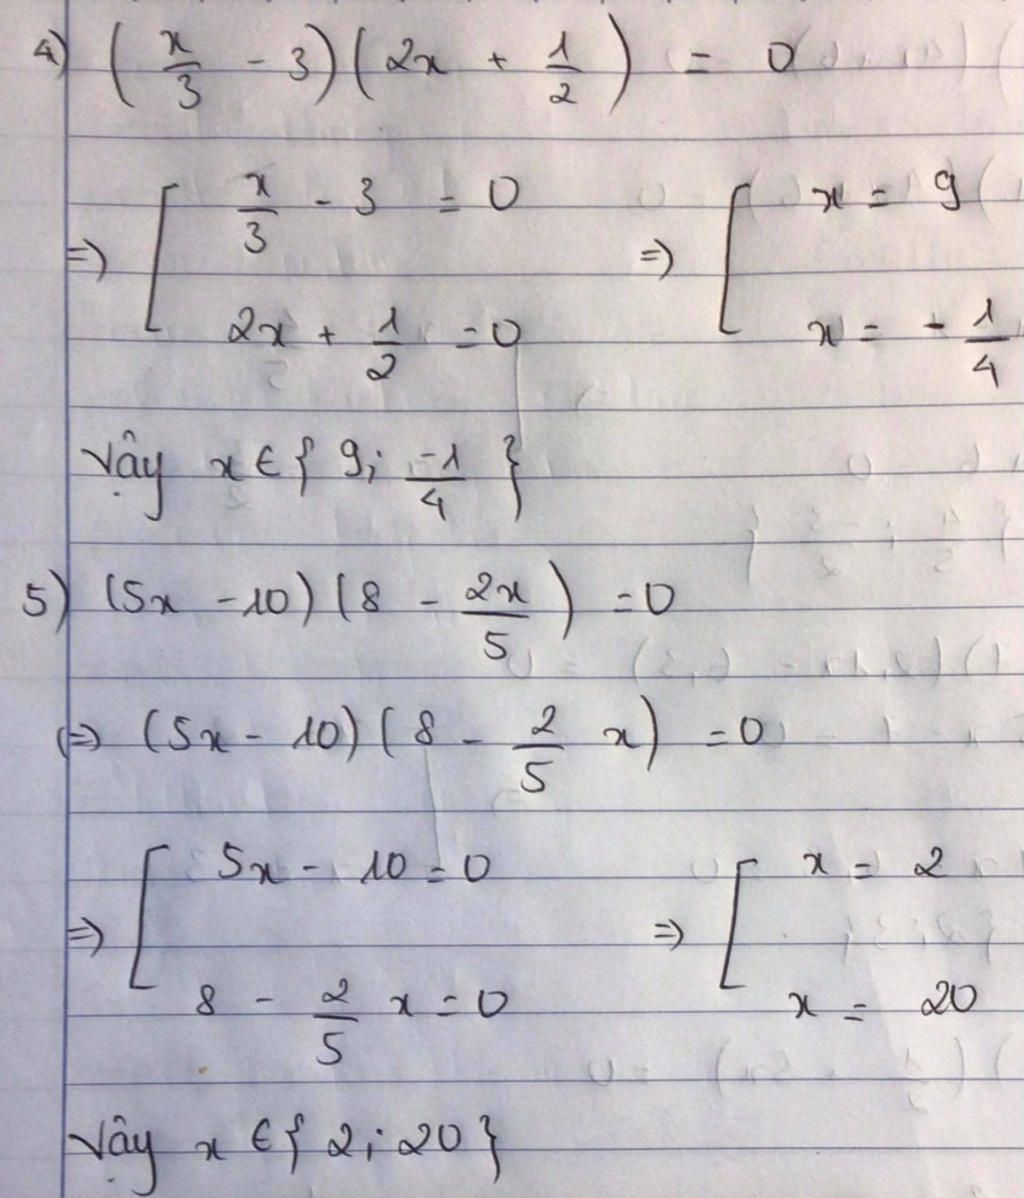 4) (x/3 - 3)(2x + 1/2) = 0
=> [ x/3 - 3 = 0 => [ x = 9
2x + 1/2 = 0 x = - 1/4
Vậy x ∈ { 9; -1/4 }
5) (5x - 10)(8 - 2x/5) = 0
(=> (5x - 10)(8 - 2/5 x) = 0
=> [ 5x - 10 = 0 => [ x = 2
8 - 2/5 x = 0 x = 20
Vậy x ∈ { 2; 20 }